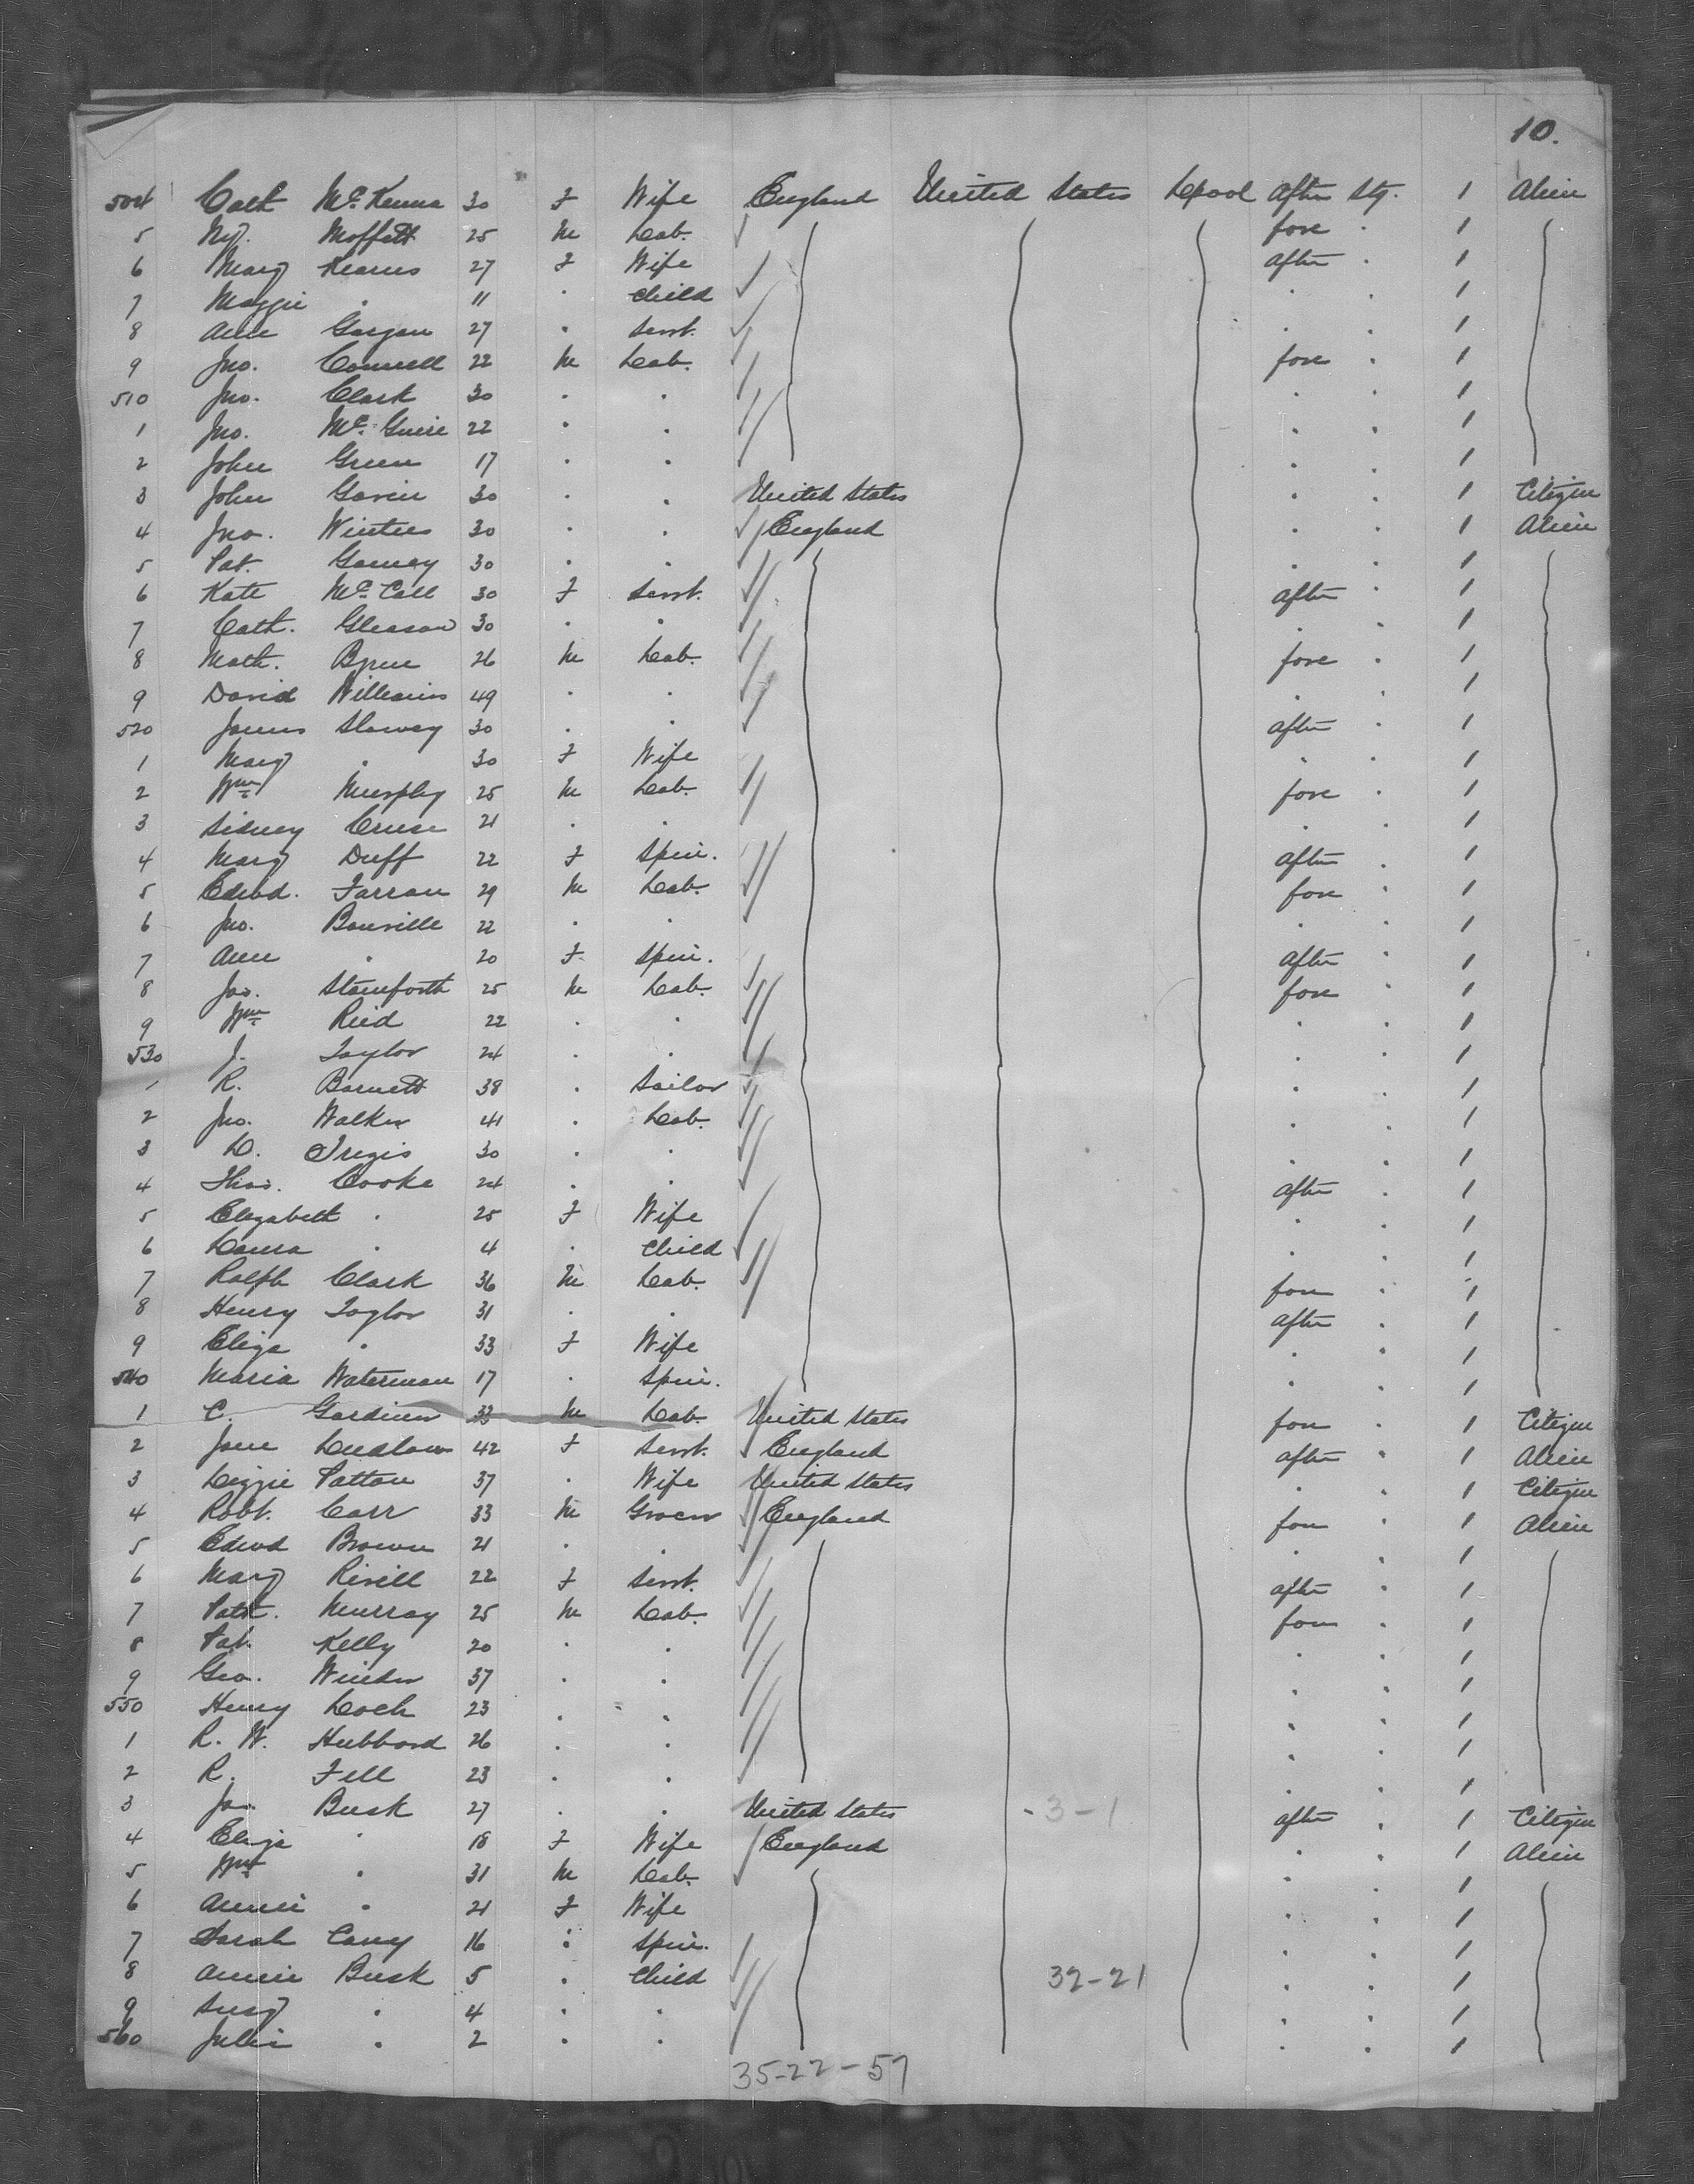 10.
504 Cath McKenna 30 F Wife England United States Lpool after Stg. 1 Alien
5 Moffett 25 M Lab. fore . 1
6 Marg Kearns 27 F Wife after . 1
7 Maggie . 11 . Child . . 1
8 Ann Gargan 27 . Servt. . . 1
9 Jno. Connell 22 M Lab. fore . 1
510 Jno. Clark 30 . . . . 1
1 Jno. McGuire 22 . . . . 1
2 John Green 17 . . . . 1
3 John Gavin 30 . . United States . . 1 Citizen
4 Jno. Winters 30 . . England . . 1 Alien
5 Pat. Garvey 30 . . . . 1
6 Kate McCall 30 F Servt. after . 1
7 Cath. Gleason 30 . . . . 1
8 Math. Byrne 26 M Lab. fore . 1
9 David Williams 49 . . . . 1
520 James Slowey 30 . . after . 1
1 Marg . 30 F Wife . . 1
2 Wm Murphy 25 M Lab. fore . 1
3 Sidney Cruse 21 . . . . 1
4 Marg Duff 22 F Spin. after . 1
5 Edwd. Farran 29 M Lab. fore . 1
6 Jno. Bonville 22 . . . . 1
7 Ann . 20 F Spin. after . 1
8 Jas. Staniforth 25 M Lab. fore . 1
9 Wm Reid 22 . . . . 1
530 J. Taylor 24 . . . . 1
1 R. Barnett 38 . Sailor . . 1
2 Jno. Walker 41 . Lab. . . 1
3 D. Tregis 30 . . . . 1
4 Thos. Cooke 24 . . after . 1
5 Elizabeth . 25 F Wife . . 1
6 Laura . 4 . Child . . 1
7 Ralph Clark 36 M Lab. fore . 1
8 Henry Taylor 31 . . after . 1
9 Eliza . 33 F Wife . . 1
540 Maria Waterman 17 . Spin. . . 1
1 C. Gardiner 33 M Lab. United States fore . 1 Citizen
2 Jane Ludlow 42 F Servt. England after . 1 Alien
3 Lizzie Patton 37 . Wife United States . . 1 Citizen
4 Robt. Carr 33 M Grocer England fore . 1 Alien
5 Edwd Brown 21 . . . . 1
6 Marg Rivell 22 F Servt. after . 1
7 Patk. Murray 25 M Lab. fore . 1
8 Pat. Kelly 20 . . . . 1
9 Geo. Winder 37 . . . . 1
550 Henry Loch 23 . . . . 1
1 R. W. Hubbard 26 . . . . 1
2 R. Fell 23 . . . . 1
3 Jas. Busk 27 . . United States 3-1 after . 1 Citizen
4 Eliza . 18 F Wife England . . 1 Alien
5 Wm . 31 M Lab. . . 1
6 Annie . 21 F Wife . . 1
7 Sarah Carey 16 . Spin. . . 1
8 Annie Busk 5 . Child 32-21 . . 1
9 Susy . 4 . . . . 1
560 Julia . 2 . . . . 1
35-22-57